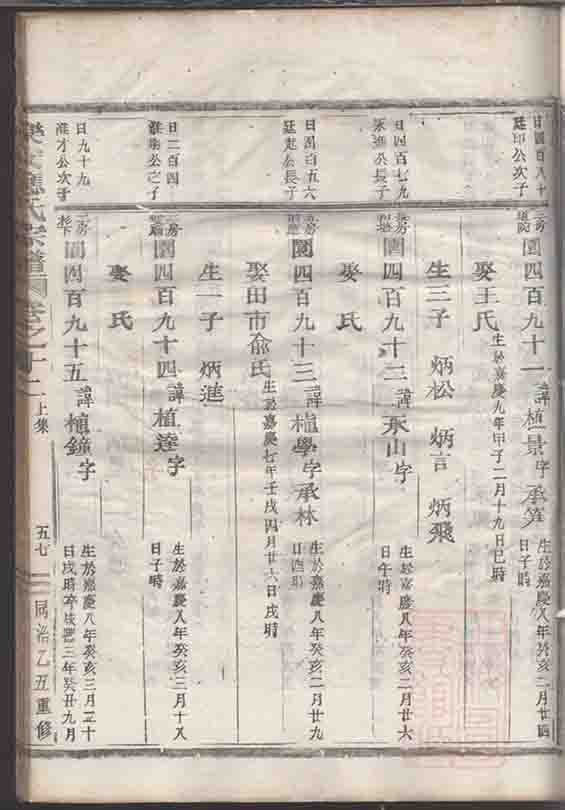 日四百八十
廷印公次子
二房 圖四百九十一 諱植景字承筭 生於嘉慶八年癸亥二月廿四
日子時
娶王氏 生於嘉慶九年甲子二月十九日巳時
生三子 炳松 炳言 炳飛
日四百七九
公長子
房 圖四百九十二 諱承山字 生於嘉慶八年癸亥二月廿六
日午時
娶 氏
日四百五六
廷 公長子
房 圖四百九十三 諱植學字承林 生於嘉慶八年癸亥二月廿九
日酉時
娶田市俞氏 生於嘉慶七年壬戌四月廿六日戌時
生一子 炳進
日二百四
公之子
房 圖四百九十四 諱植達字 生於嘉慶八年癸亥三月十八
日子時
娶 氏
日九十九
才公次子
二房 圖四百九十五 諱植鐘字 生於嘉慶八年癸亥三月二十
日戌時卒咸豐三年癸丑九月
應氏宗譜 圖卷之十二 上集 五七 同治乙丑重修